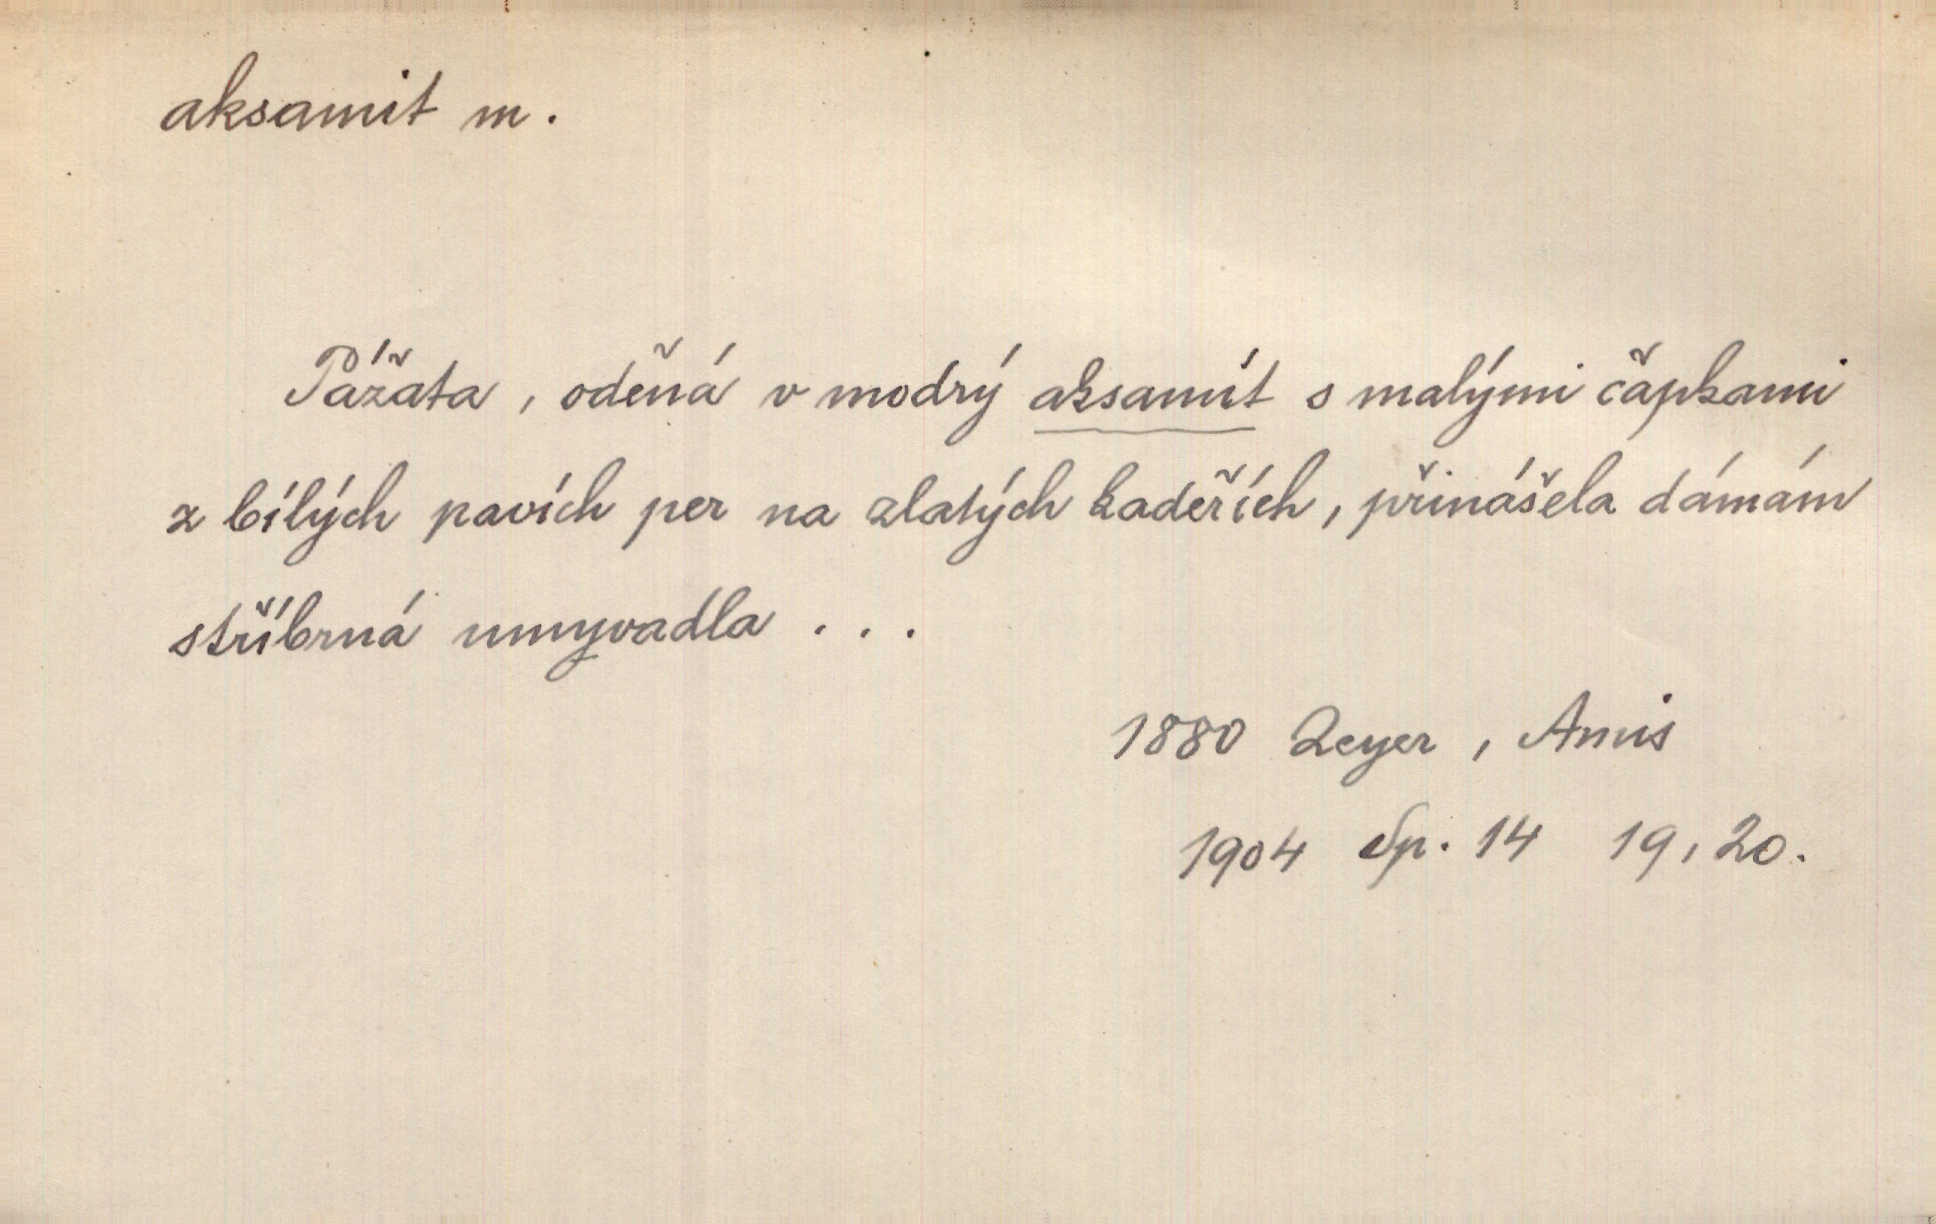 aksamit m.
Pážata, oděná v modrý aksamít s malými čapkami
z bílých pavích per na zlatých kadeřích, přinášela dámám
stříbrná umyvadla ...
1880 Zeyer, Amis
1904 Sp. 14 19, 20.